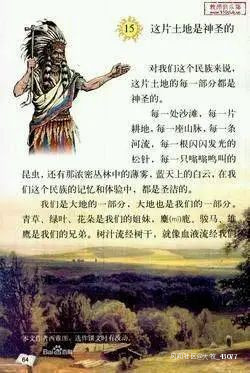 15 这片土地是神圣的
对我们这个民族来说，
这片土地的每一部分都是
神圣的。
每一处沙滩，每一片
耕地，每一座山脉，每一条
河流，每一根闪闪发光的
松针，每一只嗡嗡鸣叫的
昆虫，还有那浓密丛林中的薄雾，蓝天上的白云，在我
们这个民族的记忆和体验中，都是圣洁的。
我们是大地的一部分，大地也是我们的一部分。
青草、绿叶、花朵是我们的姐妹，麋(mí)鹿、骏马、雄
鹰是我们的兄弟。树汁流经树干，就像血液流经我们
本文作者西雅图。选作课文时有改动。
64
Baidu百科